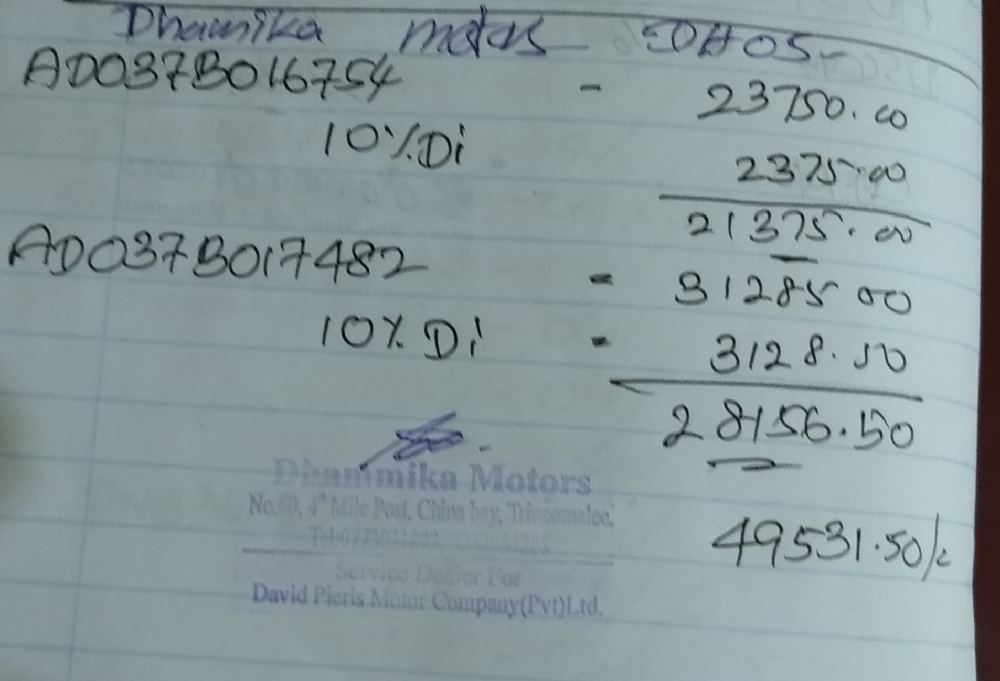 Dhamika motors - DH05-
AD037B016754 - 23750.00
10%Di 2375.00
21375.00
AD037B017482 - 31285 00
10% Di - 3128.50
28156.50
Dhammika Motors
No.60, 4th Mile Post, China bay, Trincomalee,
Service Dealer For
David Pieris Motor Company(Pvt)Ltd.
49531.50/=